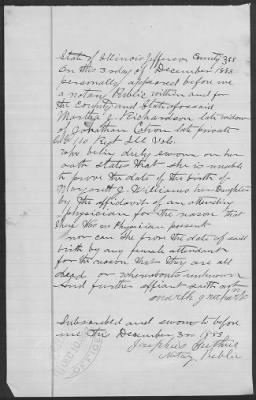 State of Illinois Jefferson County } SS
On this 3 day of December 1883
personally appeared before me
a notary Public within and for
the County and State aforesaid
Martha J Richardson late widow
of Jonathan late private
Co 110 Regt Ill Vol.
who being duly sworn on her
oath states that she is unable
to prove the date of the birth of
Margarett J. Williams her Daughter
by the affidavit of an attending
physician for the reason that
there was no Physician present
nor can she prove the date of said
birth by any female attendants
for the reason that they are all
dead or whereabouts unknown
And further affiant saith not
Subscribed and sworn to before
me this December 3rd 1883
Notary Public